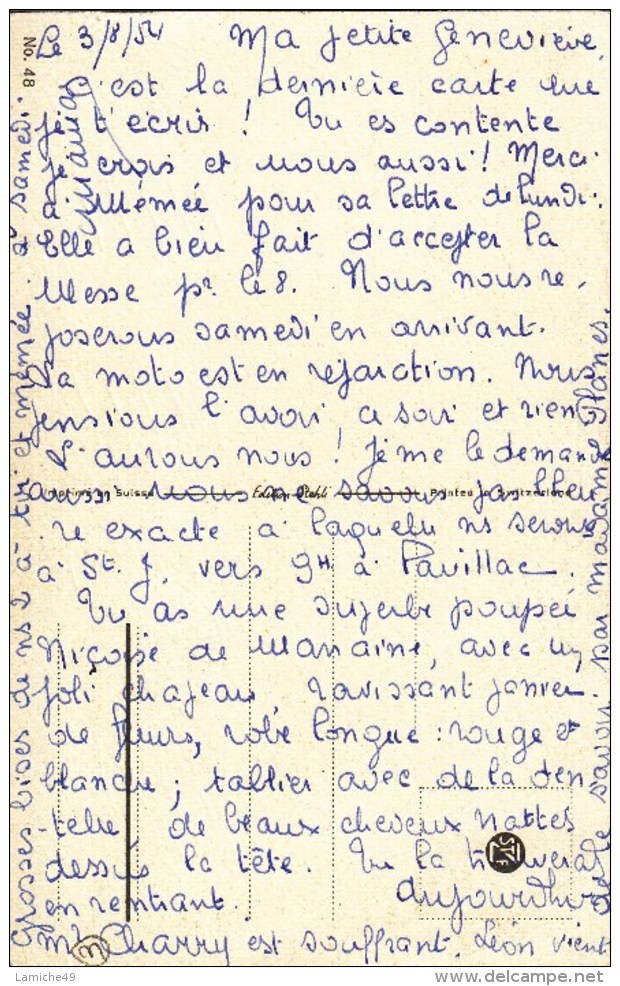 Le 3/8/54 Ma petite Geneviève,
No. 48
c'est la dernière carte que
je t'écris ! Tu es contente
je crois et nous aussi ! Merci
à Mémée pour sa lettre de lundi.
Elle a bien fait d'accepter la
Messe pr le 8. Nous nous re-
poserons samedi en arrivant.
La moto est en réparation. Nous
pensions l'avoir ce soir et rien
L'aurons nous ! Je me le demande
aussi nous ne savons pas l'heu
Imprimé en Suisse Edition Stehli Printed in Switzerland
re exacte à laquelle ns serons
à St. J. vers 9H à Pauillac.
Tu as une superbe poupée
Niçoise de Marraine, avec un
joli chapeau, ravissant panier
de fleurs, robe longue : rouge et
blanche ; tablier avec de la den
-telle, de beaux cheveux nattés
dessus la tête. Tu la trouveras
en rentrant. aujourd'hui
Mr Charry est souffrant, Léon vient
de le savoir par madame Planes.
Grosses bises de ns 2 à toi et mémée. à samedi.
Lamiche49
www.delcampe.net